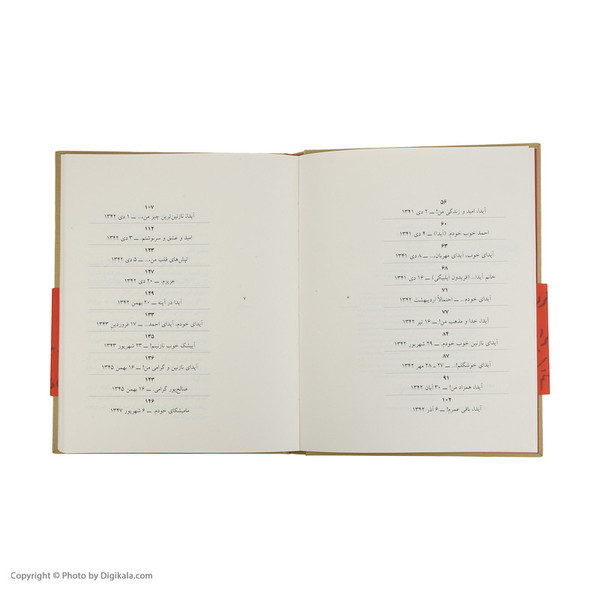 ۵۶
آیدا، امید و زندگی من! ــ ۲ دی ۱۳۴۱
۶۰
احمد خوب خودم. (آیدا) ــ ۴ دی ۱۳۴۱
۶۳
آیدای خوب، آیدای مهربان.. ــ ۸ دی ۱۳۴۱
۶۸
خانم آیدا.. (فریدون ایل‌بیگی) ــ ۱۶ دی ۱۳۴۱
۷۱
آیدای خودم.. ــ احتمالاً اردیبهشت ۱۳۴۲
۷۷
آیدا، خدا و مذهب من! ــ ۱۶ تیر ۱۳۴۲
۸۴
آیدای نازنین خوب خودم. ــ ۲۹ شهریور ۱۳۴۲
۸۷
آیدای خوشگلم!.. ــ ۲۷ ـ ۲۸ مهر ۱۳۴۲
۹۱
آیدا، همزاد من! ــ ۳۰ آبان ۱۳۴۲
۱۰۴
آیدا، باقی عمرم! ــ ۶ آذر ۱۳۴۲
۱۰۷
آیدا، نازنین‌ترین چیز من... ــ ۱ دی ۱۳۴۲
۱۱۴
امید و عشق و سرنوشتم. ــ ۳ دی ۱۳۴۲
۱۲۳
تپش‌های قلب من... ــ ۵ دی ۱۳۴۲
۱۲۷
عزیزم ــ ۲۰ دی ۱۳۴۲
۱۲۹
آیدا در آینه ــ ۲۰ بهمن ۱۳۴۲
۱۳۳
آیدای خودم، آیدای احمد.. ــ ۱۷ فروردین ۱۳۴۳
۱۳۵
آیشک خوب نازنینم! ــ ۲۳ شهریور ۱۳۴۳
۱۳۶
آیدای نازنین و گرامی من! ــ ۱۶ بهمن ۱۳۴۵
۱۴۳
صالح‌پور گرامی. ــ ۱۶ بهمن ۱۳۴۵
۱۴۶
مامیشکای خودم. ــ ۶ شهریور ۱۳۴۷
Copyright © Photo by Digikala.com